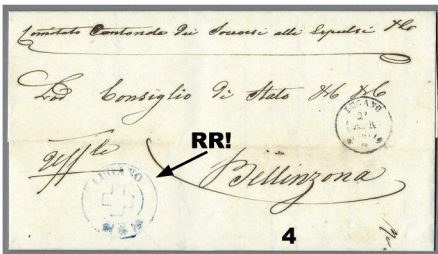 Comitato Cantonale dei Soccorsi alli Espulsi &c
Lod Consiglio di Stato &c &c
LUGANO
RR!
Uff.le
Bellinzona
LUGANO
4